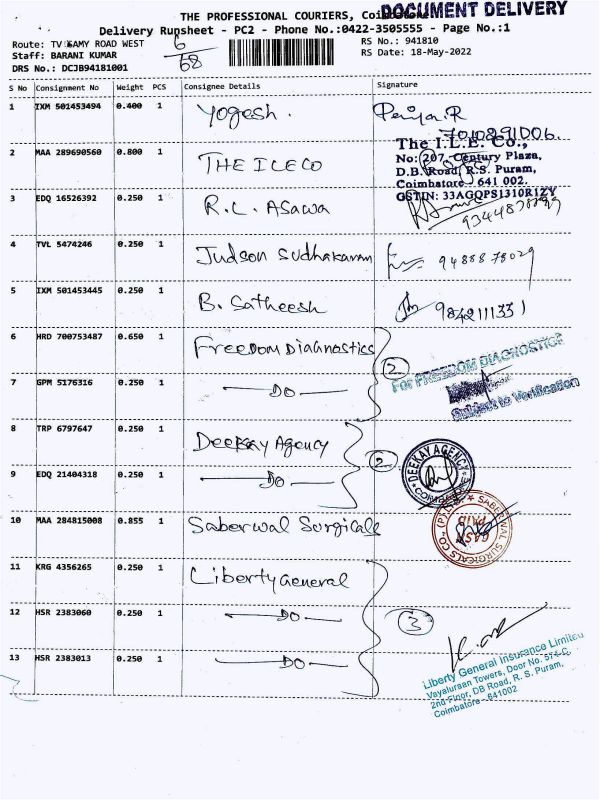 DOCUMENT DELIVERY
THE PROFESSIONAL COURIERS,
Delivery Runsheet - PC2 - Phone No.:0422-3505555 - Page No.:1
Route: TV SAMY ROAD WEST
Staff: BARANI KUMAR
DRS No.: DCJB94181001
6
68
RS No.: 941810
RS Date: 18-May-2022
S No Consignment No Weight PCS Consignee Details Signature
1 IXM 501453494 0.400 1 Yogesh. Periya.R
7010891006.
2 MAA 289690560 0.800 1 THE ILECO
The I.L.E. Co.,
No: 207, Century Plaza,
D.B. Road, R.S. Puram,
Coimbatore - 641 002.
GSTIN: 33AGQPS1310R1ZY
3 EDQ 16526392 0.250 1 R.L. Asawa
4 TVL 5474246 0.250 1 Judson Sudhakaran 9488878029
5 IXM 501453445 0.250 1 B. Satheesh 9842111331
6 HRD 700753487 0.650 1 Freedom Diagnostics
2
For FREEDOM DIAGNOSTICS
Subject to Verification
7 GPM 5176316 0.250 1 DO
8 TRP 6797647 0.250 1 Deekay Agency
2
DEEKAY AGENCY
COIMBATORE
9 EDQ 21404318 0.250 1 DO
10 MAA 284815008 0.855 1 Saberwal Surgicals
SABERWAL SURGICALS CO., (P) LTD.
CASH
PAID
11 KRG 4356265 0.250 1 Liberty General
12 HSR 2383060 0.250 1 DO
3
13 HSR 2383013 0.250 1 DO
Liberty General Insurance Limited
Vayaluraan Towers, Door No. 574-C,
2nd Floor, DB Road, R. S. Puram,
Coimbatore - 641002